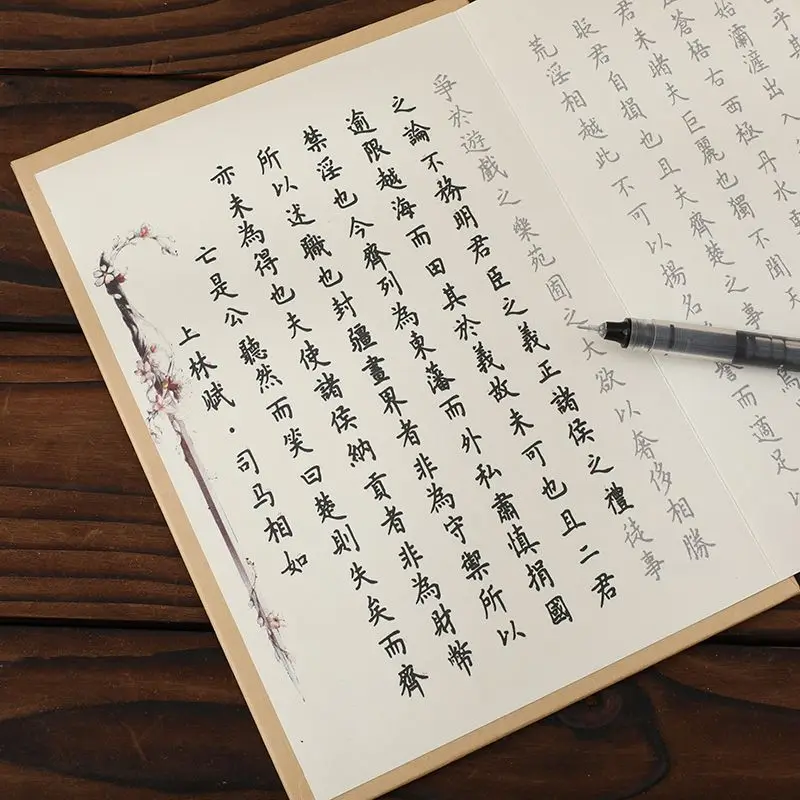 上林赋·司马相如
亡是公聽然而笑曰楚則失矣而齊
亦未為得也夫使諸侯納貢者非為財幣
所以述職也封疆畫界者非為守禦所以
禁淫也今齊列為東藩而外私肅慎捐國
逾限越海而田其於義故未可也且二君
之論不務明君臣之義正諸侯之禮徒事
爭於遊戲之樂苑囿之大欲以奢侈相勝
荒淫相越此不可以揚名譽而適足以
貶君自損也且夫齊楚之事焉
君未睹夫巨麗也獨不聞天
蒼梧右西極丹水
始灞滻出入
乎其